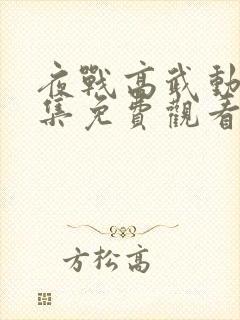 夜戰高武動
集免費觀看
方松高